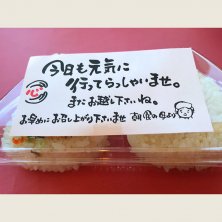 心
今日も元気に
行ってらっしゃいませ。
またお越し下さいね。
お早めにお召し上がり下さいませ 朝風の母より